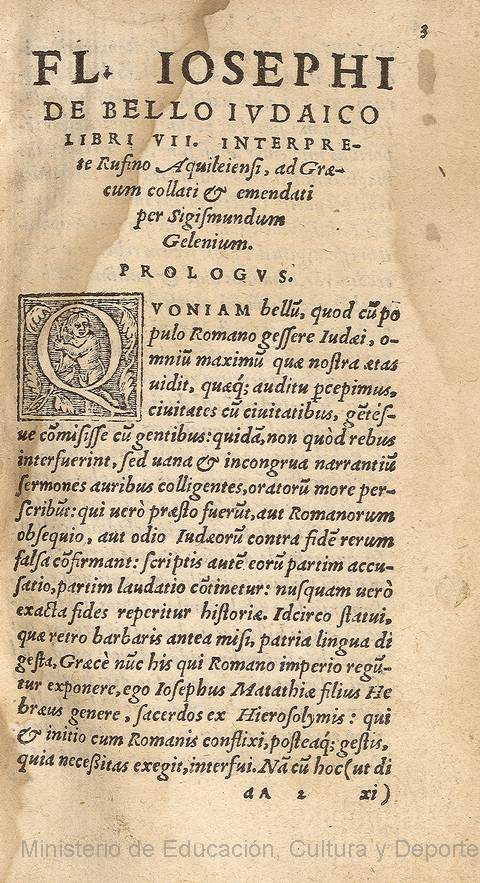 3
FL. IOSEPHI
DE BELLO IVDAICO
LIBRI VII. INTERPRE-
te Rufino Aquileiensi, ad Græ-
cum collati & emendati
per Sigismundum
Gelenium.
PROLOGVS.
QVONIAM bellũ, quod cũ po
pulo Romano gessere Iudæi, o-
mniũ maximũ quæ nostra ætas
uidit, quæq; auditu pcepimus,
ciuitates cũ ciuitatibus, gẽtés-
ue cõmisisse cũ gentibus: quidã, non quòd rebus
interfuerint, sed uana & incongrua narrantiũ
sermones auribus colligentes, oratorũ more per-
scribũt: qui uerò præsto fuerũt, aut Romanorum
obsequio, aut odio Iudæorũ contra fidẽ rerum
falsa cõfirmant: scriptis autẽ eorũ partim accu-
satio, partim laudatio cõtinetur: nusquam uerò
exacta fides reperitur historiæ. Idcirco statui,
quæ retro barbaris antea misi, patria lingua di
gesta, Græcè nũc his qui Romano imperio regũ-
tur exponere, ego Iosephus Matathiæ filius He
bræus genere, sacerdos ex Hierosolymis: qui
& initio cum Romanis conflixi, posteaq; gestis,
quia necessitas exegit, interfui. Nã cũ hoc (ut di
aA 2 xi)
Ministerio de Educación, Cultura y Deporte